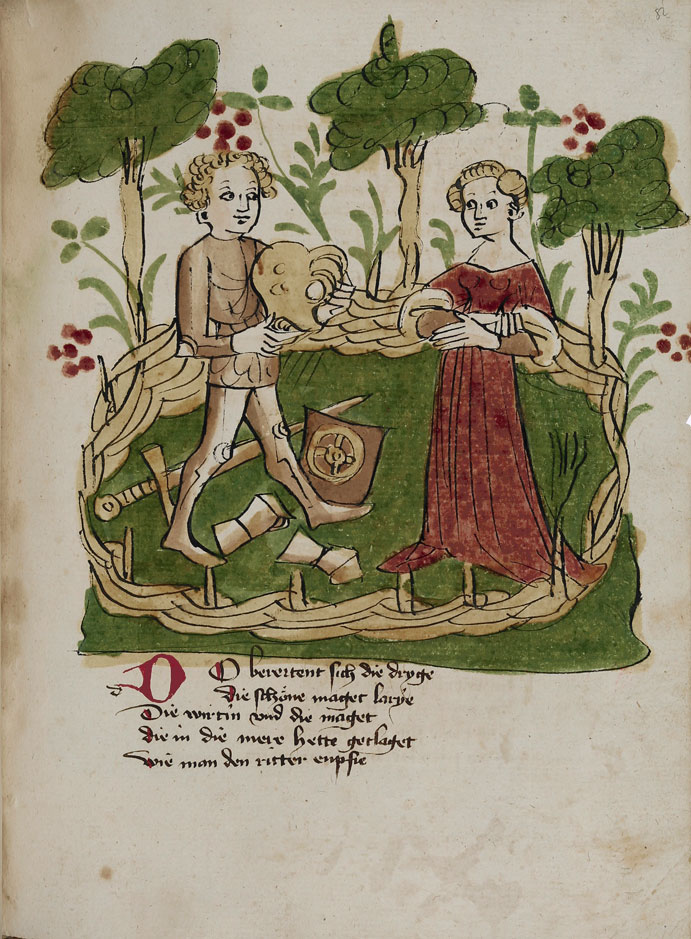 82
DO berertent sich die dryge
die schöne maget larye
Die wirtin vnd die maget
die in die mere hette geclaget
wie man den ritter enpfie